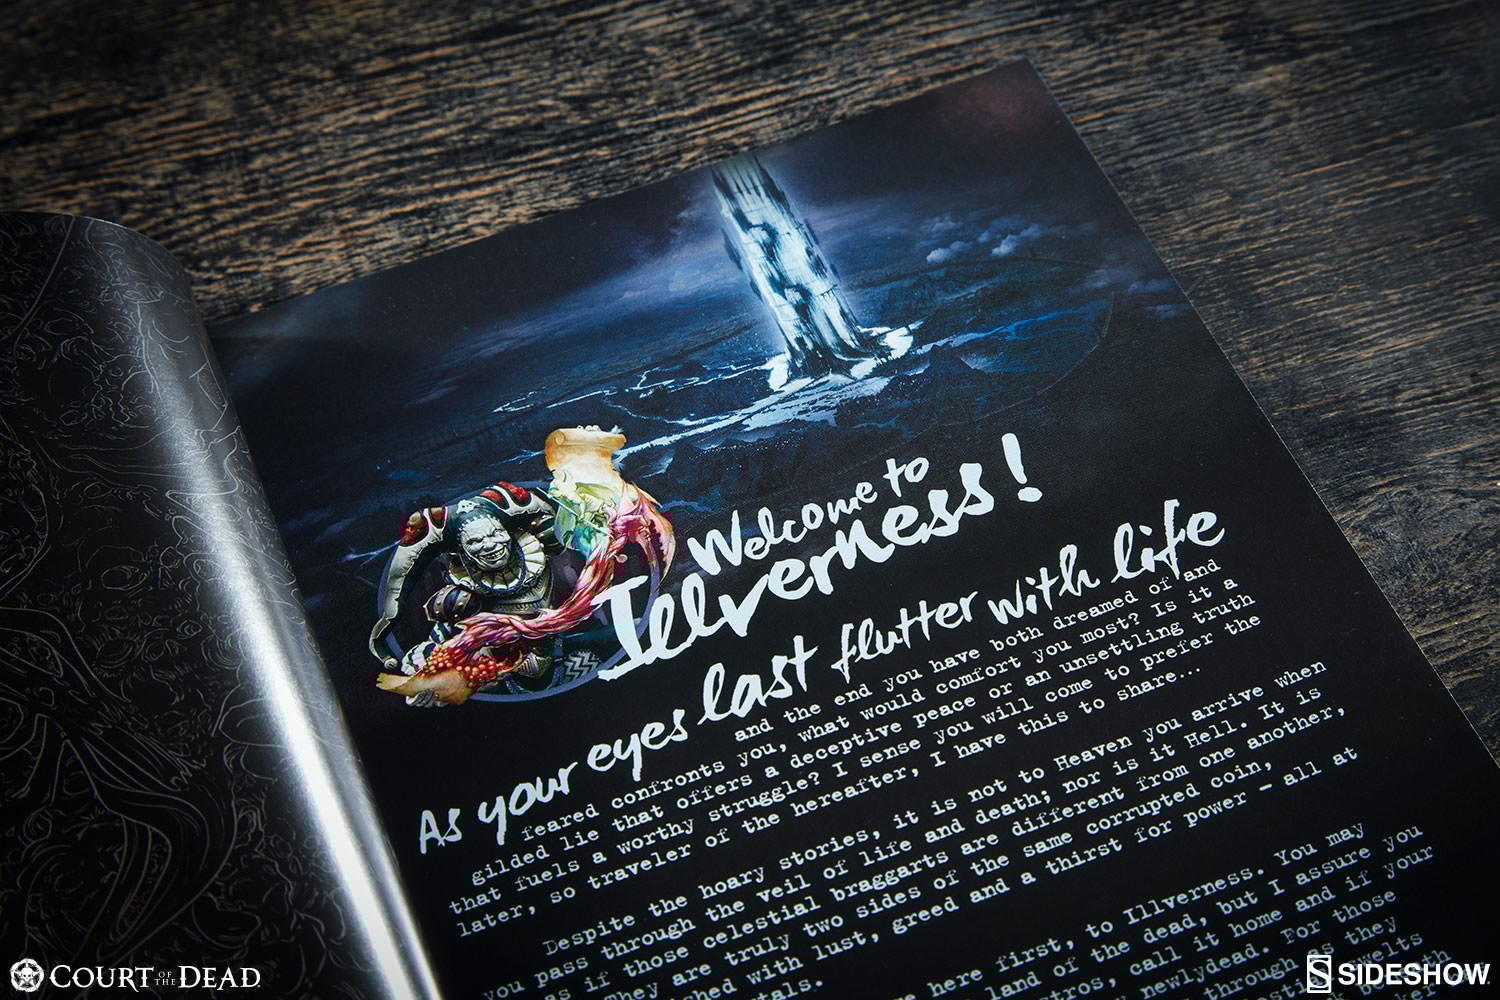 Welcome to
Illverness!
As your eyes last flutter with life
and the end you have both dreamed of and
feared confronts you, what would comfort you most? Is it a
gilded lie that offers a deceptive peace or an unsettling truth
that fuels a worthy struggle? I sense you will come to prefer the
later, so traveler of the hereafter, I have this to share...
Despite the hoary stories, it is not to Heaven you arrive when
you pass through the veil of life and death; nor is it Hell. It is
as if those celestial braggarts are different from one another,
They are truly two sides of the same corrupted coin,
with lust, greed and a thirst for power - all at
here first, to Illverness. You may
land of the dead, but I assure you
call it home and if your
newlydead. For those
through as they
COURT OF THE DEAD
SIDESHOW